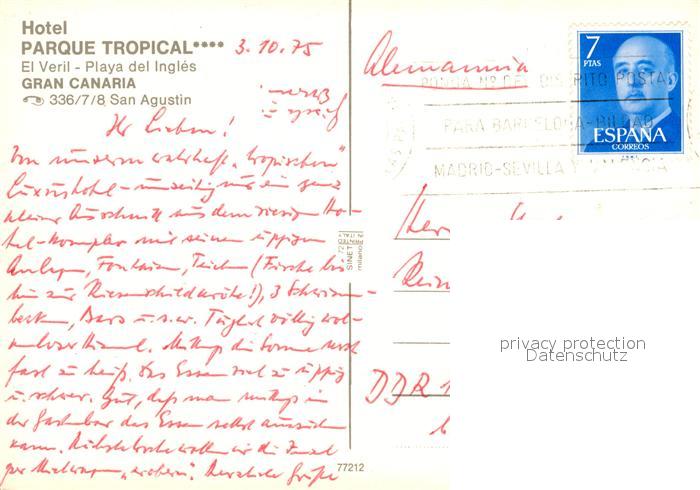 Hotel
PARQUE TROPICAL****
El Veril - Playa del Inglés
GRAN CANARIA
336/7/8 San Agustin
3.10.75
Ihr Lieben!
Von unserem wahrhaft "tropischen"
Luxushotel - umseitig nur ein ganz
kleiner Ausschnitt aus dem riesigen Ho-
tel-Komplex mit seinen üppigen
Anlagen, Fontänen, Teichen (Fische bis
hin zur Riesenschildkröte!), 3 Schwimm-
becken, Bars u.s.w. Täglich völlig wol-
kenloser Himmel. Mittags die Sonne
fast zu heiß. Das Essen viel zu üppig
u. schwer. Gut, daß man mittags in
der das Essen selbst aussuchen
kann. Nächste Woche wollen wir die Insel
per Mietwagen "erobern". Herzliche Grüße
Alemannia
7
PTAS
ESPAÑA
CORREOS
PONGA Nº DEL DISTRITO POSTAL
PARA BARCELONA-BILBAO
MADRID-SEVILLA Y VALENCIA
PRINTED
ITALY
milano
77212
Herr
DDR
privacy protection
Datenschutz